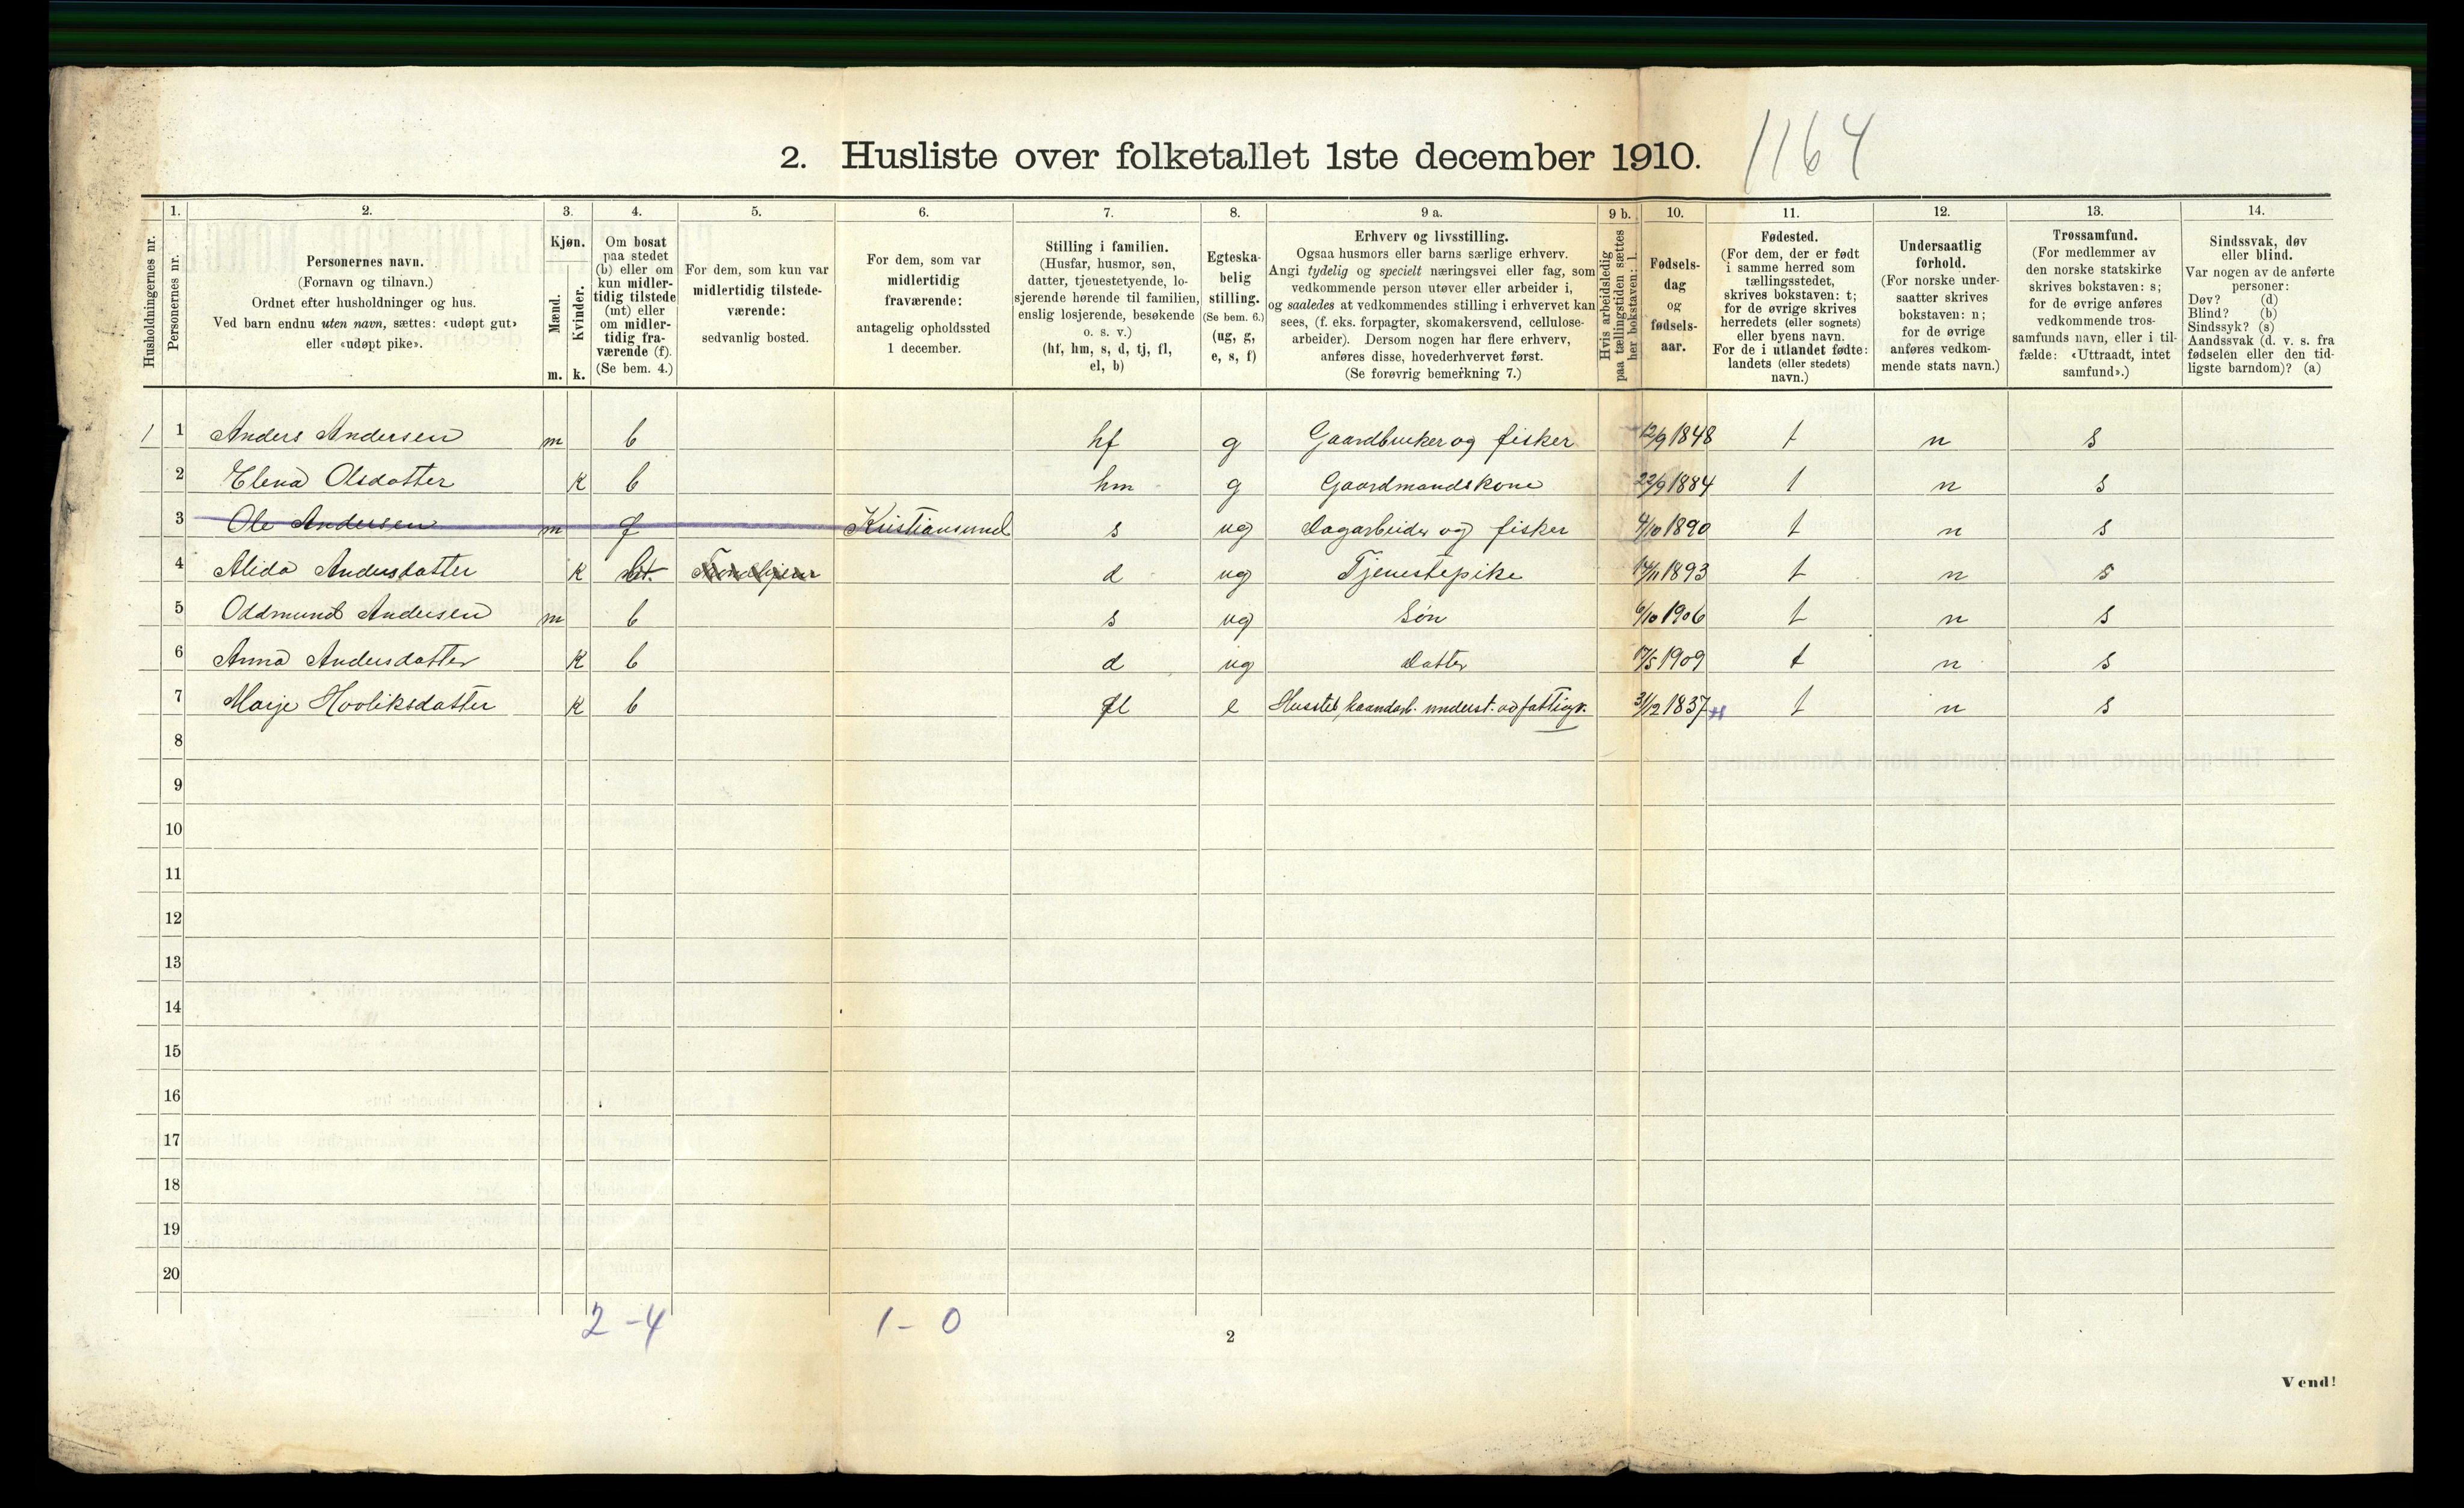 2. Husliste over folketallet 1ste december 1910. 1164
Husholdningernes nr.
1. Personernes nr.
2. Personernes navn. (Fornavn og tilnavn.) Ordnet efter husholdninger og hus. Ved barn endnu uten navn, sættes: «udøpt gut» eller «udøpt pike».
3. Kjøn. Mænd. m. Kvinder. k.
4. Om bosat paa stedet (b) eller om kun midlertidig tilstede (mt) eller om midlertidig fraværende (f). (Se bem. 4.)
5. For dem, som kun var midlertidig tilstedeværende: sedvanlig bosted.
6. For dem, som var midlertidig fraværende: antagelig opholdssted 1 december.
7. Stilling i familien. (Husfar, husmor, søn, datter, tjenestetyende, losjerende hørende til familien, enslig losjerende, besøkende o. s. v.) (hf, hm, s, d, tj, fl, el, b)
8. Egteskabelig stilling. (Se bem. 6.) (ug, g, e, s, f)
9 a. Erhverv og livsstilling. Ogsaa husmors eller barns særlige erhverv. Angi tydelig og specielt næringsvei eller fag, som vedkommende person utøver eller arbeider i, og saaledes at vedkommendes stilling i erhvervet kan sees, (f. eks. forpagter, skomakersvend, cellulosearbeider). Dersom nogen har flere erhverv, anføres disse, hovederhvervet først. (Se forøvrig bemerkning 7.)
9 b. Hvis arbeidsledig paa tællingstiden sættes her bokstaven: l.
10. Fødselsdag og fødselsaar.
11. Fødested. (For dem, der er født i samme herred som tællingsstedet, skrives bokstaven: t; for de øvrige skrives herredets (eller sognets) eller byens navn. For de i utlandet fødte: landets (eller stedets) navn.)
12. Undersaatlig forhold. (For norske undersaatter skrives bokstaven: n; for de øvrige anføres vedkommende stats navn.)
13. Trossamfund. (For medlemmer av den norske statskirke skrives bokstaven: s; for de øvrige anføres vedkommende trossamfunds navn, eller i tilfælde: «Uttraadt, intet samfund».)
14. Sindssvak, døv eller blind. Var nogen av de anførte personer: Døv? (d) Blind? (b) Sindssyk? (s) Aandssvak (d. v. s. fra fødselen eller den tidligste barndom)? (a)
1 1 Anders Andersen m b hf g Gaardbruker og fisker 12/9 1848 t n s
2 Elena Olsdatter k b hm g Gaardmandskone 22/9 1884 t n s
3 Ole Andersen m f Kristiansund s ug Dagarbeider og fisker 4/10 1890 t n s
4 Alida Andersdatter k Trondhjem d ug Tjenestepike 14/11 1893 t n s
5 Oddmund Andersen m b s ug Søn 6/10 1906 t n s
6 Anna Andersdatter k b d ug Datter 17/5 1909 t n s
7 Marje k b fl e underst. av fattigv. 31/12 1837 t n s
8
9
10
11
12
13
14
15
16
17
18
19
20
2 - 4 1 - 0
2
Vend!